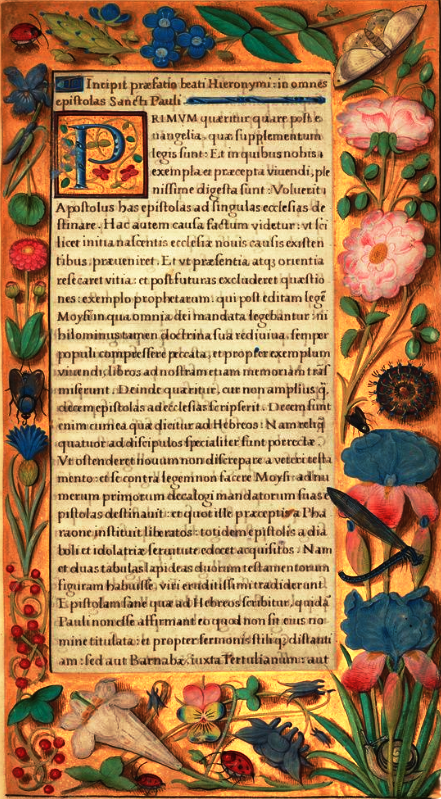 Incipit præfatio beati Hieronymi: in omnes
epistolas Sancti Pauli
PRIMVM quæritur quare post e
uangelia, quæ supplementum
legis sunt: Et in quibus nobis
exempla et præcepta viuendi, ple
nissime digesta sunt: Voluerit
Apostolus has epistolas ad singulas ecclesias de
stinare. Hac autem causa factum videtur: vt sci
licet initia nascentis ecclesiæ nouis causis existen
tibus, præueniret. Et vt præsentia atq; orientia
resecaret vitia: et post futuras excluderet quæstio
nes: exemplo prophetarum: qui post editam legē
Moysi in qua omnia dei mandata legebantur: ni
hilominus tamen doctrina sua rediuiua, semper
populi compressere peccata, et propter exemplum
viuendi, libros ad nostram etiam memoriam trās
miserunt. Deinde quæritur, cur non amplius q̄
decem epistolas ad ecclesias scripserit. Decem sunt
enim cum ea quæ dicitur ad Hebreos: Nam reliq̄
quatuor ad discipulos specialiter sunt porrectæ.
Vt ostenderet nouum non discrepare a veteri testa
mento: et se contra legem non facere Moysi: ad nu
merum primorum decalogi mandatorum suas
epistolas destinauit: et quot ille præceptis a Pha
raone instituit liberatos: totidem epistolis a dia
boli et idolatriæ seruitute edocet acquisitos: Nam
et duas tabulas lapideas duorum testamentorum
figuram habuisse, viri eruditissimi tradiderunt.
Epistolam sane quæ ad Hebreos scribitur, quidā
Pauli non esse affirmant eo quod non sit eius no
mine titulata: et propter sermonis stiliq; distanti
am: sed aut Barnabæ, iuxta Tertulianum: aut